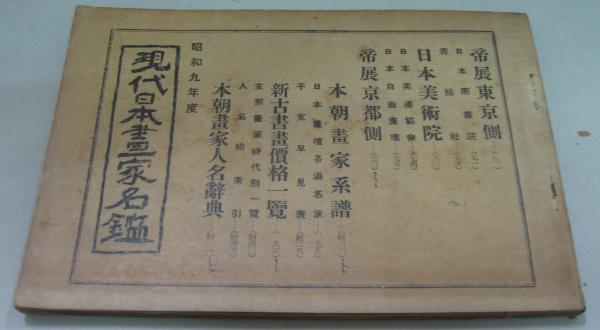 帝展東京側
日本南畫院
青龍社
日本美術院
日本美術協會
日本自由畫壇
帝展京都側
本朝畫家系譜
日本畫壇各派名家
干支早見表
新古書畫價格一覽
支那畫家時代別一覽
人名總索引
本朝畫家人名辭典
昭和九年度
現代日本畫家名鑑